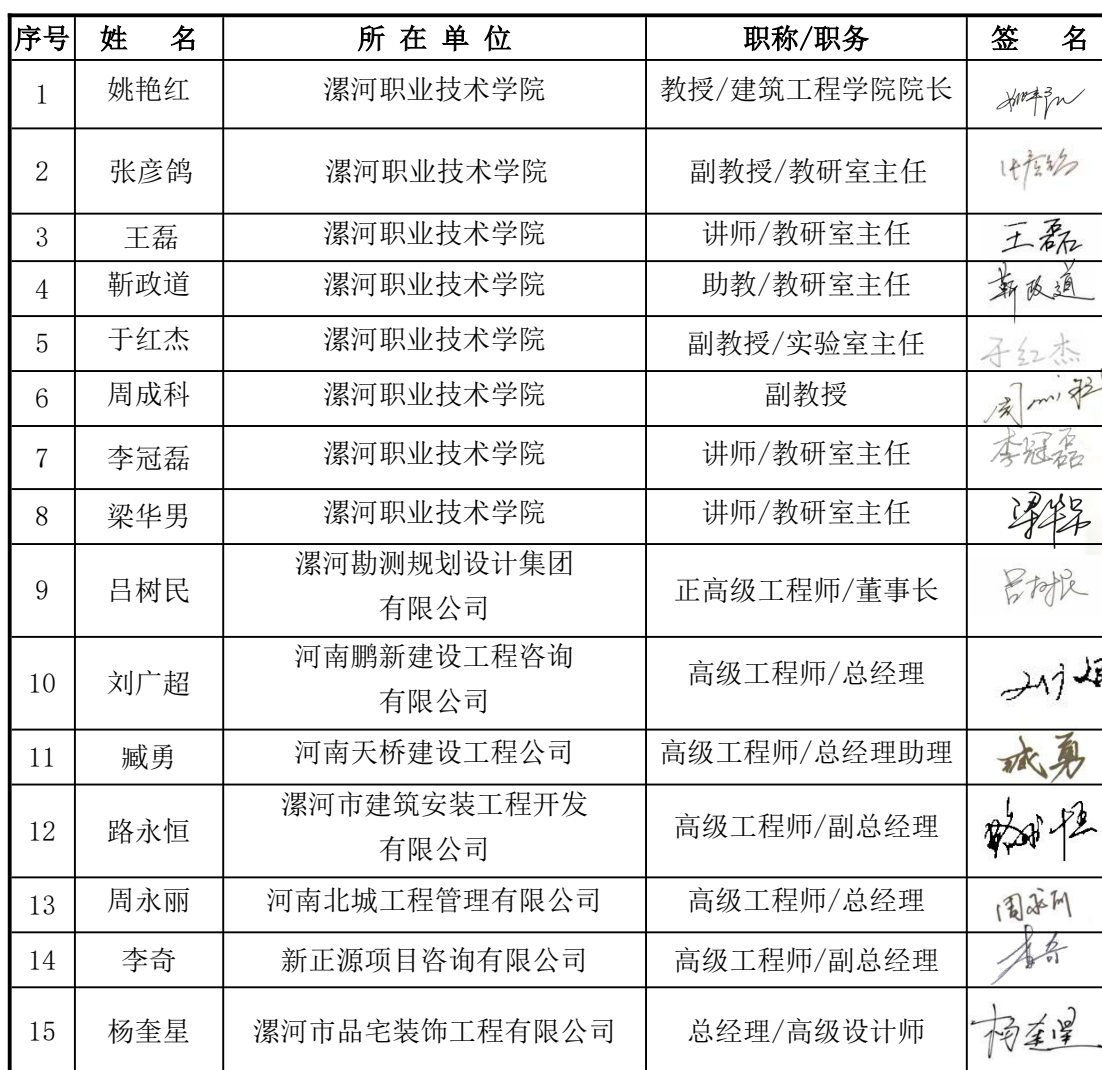 序号 姓 名 所 在 单 位 职称/职务 签 名
1 姚艳红 漯河职业技术学院 教授/建筑工程学院院长
2 张彦鸽 漯河职业技术学院 副教授/教研室主任 张彦鸽
3 王磊 漯河职业技术学院 讲师/教研室主任 王磊
4 靳政道 漯河职业技术学院 助教/教研室主任 靳政道
5 于红杰 漯河职业技术学院 副教授/实验室主任 于红杰
6 周成科 漯河职业技术学院 副教授
7 李冠磊 漯河职业技术学院 讲师/教研室主任 李冠磊
8 梁华男 漯河职业技术学院 讲师/教研室主任 梁华男
9 吕树民 漯河勘测规划设计集团
有限公司 正高级工程师/董事长 吕树民
10 刘广超 河南鹏新建设工程咨询
有限公司 高级工程师/总经理
11 臧勇 河南天桥建设工程公司 高级工程师/总经理助理 臧勇
12 路永恒 漯河市建筑安装工程开发
有限公司 高级工程师/副总经理 路永恒
13 周永丽 河南北城工程管理有限公司 高级工程师/总经理 周永丽
14 李奇 新正源项目咨询有限公司 高级工程师/副总经理 李奇
15 杨奎星 漯河市品宅装饰工程有限公司 总经理/高级设计师 杨奎星